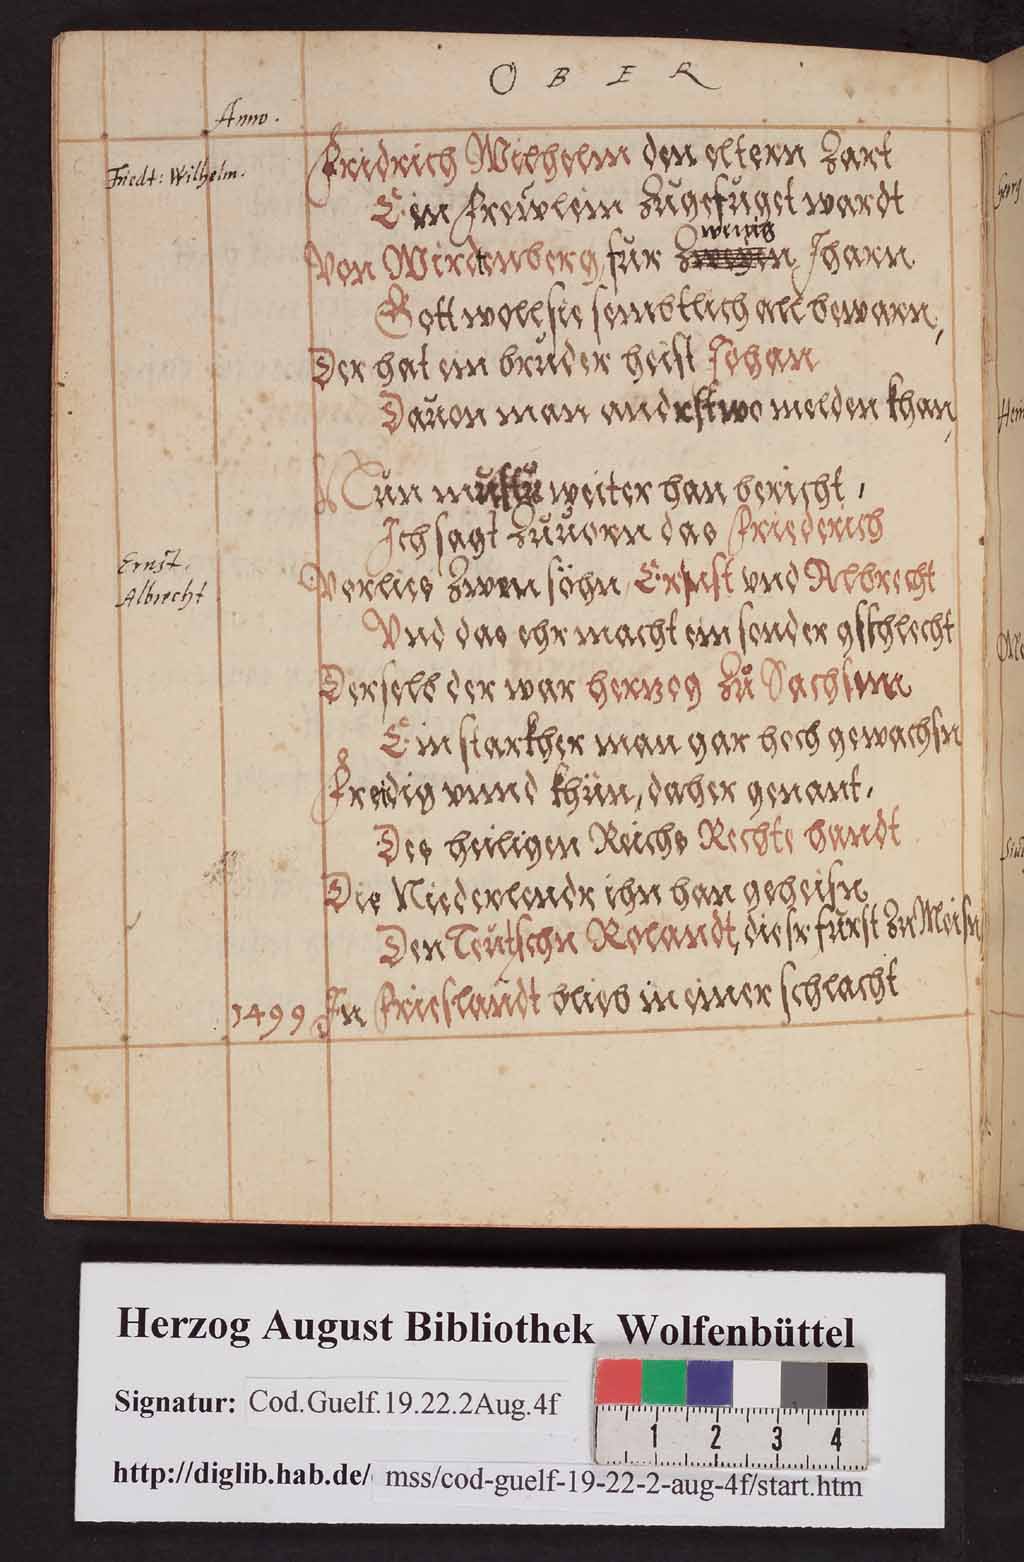 OBER
Anno.
Friedt: Wilhelm.
Fridrich Wilhelm den eltern Zart
Ein Freuwlein Zugefuget wardt
Von Wirtenberg, für Zweyen wenig Jharn
Gott woll sie sembtlich all bewarn,
Der hat ein bruder heist Johan
Dauon man andrstwo melden khan,
Nun mustu weiter han bericht,
Ich sagt Zuuorn das Friederich
Ernst.
Albrecht
Verlies Zwen söhn Ernst vnd Albrecht
Vnd das ehr macht ein sonder gschlecht
Derselb der war hertzog Zu Sachsenn
Ein starkher man gar hoch gewachsn
Freidig vnnd khün, daher genant,
Des heiligen Reichs Rechte handt
Die Niederlendr ihn han geheisn
Den Teutschn Rolandt, diesr fürst Zu Meisn
1499 In Frieslandt blieb in einer schlacht
Georg
Hein
Herzog August Bibliothek Wolfenbüttel
Signatur: Cod.Guelf.19.22.2Aug.4f
http://diglib.hab.de/ mss/cod-guelf-19-22-2-aug-4f/start.htm
1 2 3 4